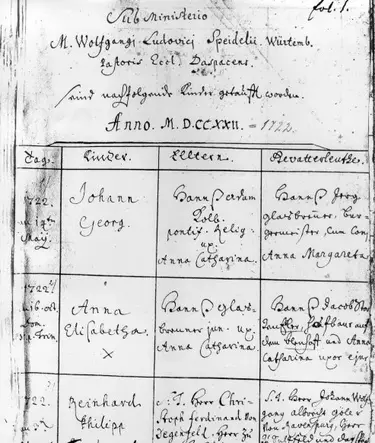 fol. 1.
Sub Ministerio
M. Wolfgangi Ludovici Speidelii. Würtemb.
Pastoris Eccl. Daspacens.
sind nachfolgende Kinder getaufft worden.
Anno. M.D.CCXXII. = 1722.
Tag. Kinder. Elltern. Gevatterleuthe.
1722.
May.
Johann
Georg.
Hannß Adam
Kolb.
pontif. Relig.
ux.
Anna Catharina.
Hannß Jerg
glasbrenner, bur-
germeister, cum Conj.
Anna Margareta
1722.
16. oct.
Dom.
Trin.
Anna
Elisabetha.
x
Hannß Glas-
brenner jun. ux.
Anna Catharina
Hannß Jacob
und Anna
Catharina uxor ejus
722.
Reinhard
Philipp
S.T. Herr Chri-
stoph ferdinand von
Degenfeld. Herr zu
S.T. Herr Johann Wolf-
gang albrecht göler
von Ravenspurg, Herr